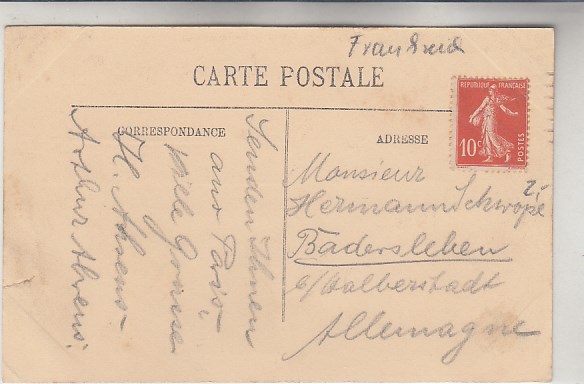 Frankreich
CARTE POSTALE
REPUBLIQUE FRANÇAISE
10c
POSTES
CORRESPONDANCE
ADRESSE
Senden Ihnen
aus Paris
viele Grüsse
H. Ahrens
Arthur Ahrens.
2,-
Monsieur
Hermann Schwope
Badersleben
b/Halberstadt
Allemagne